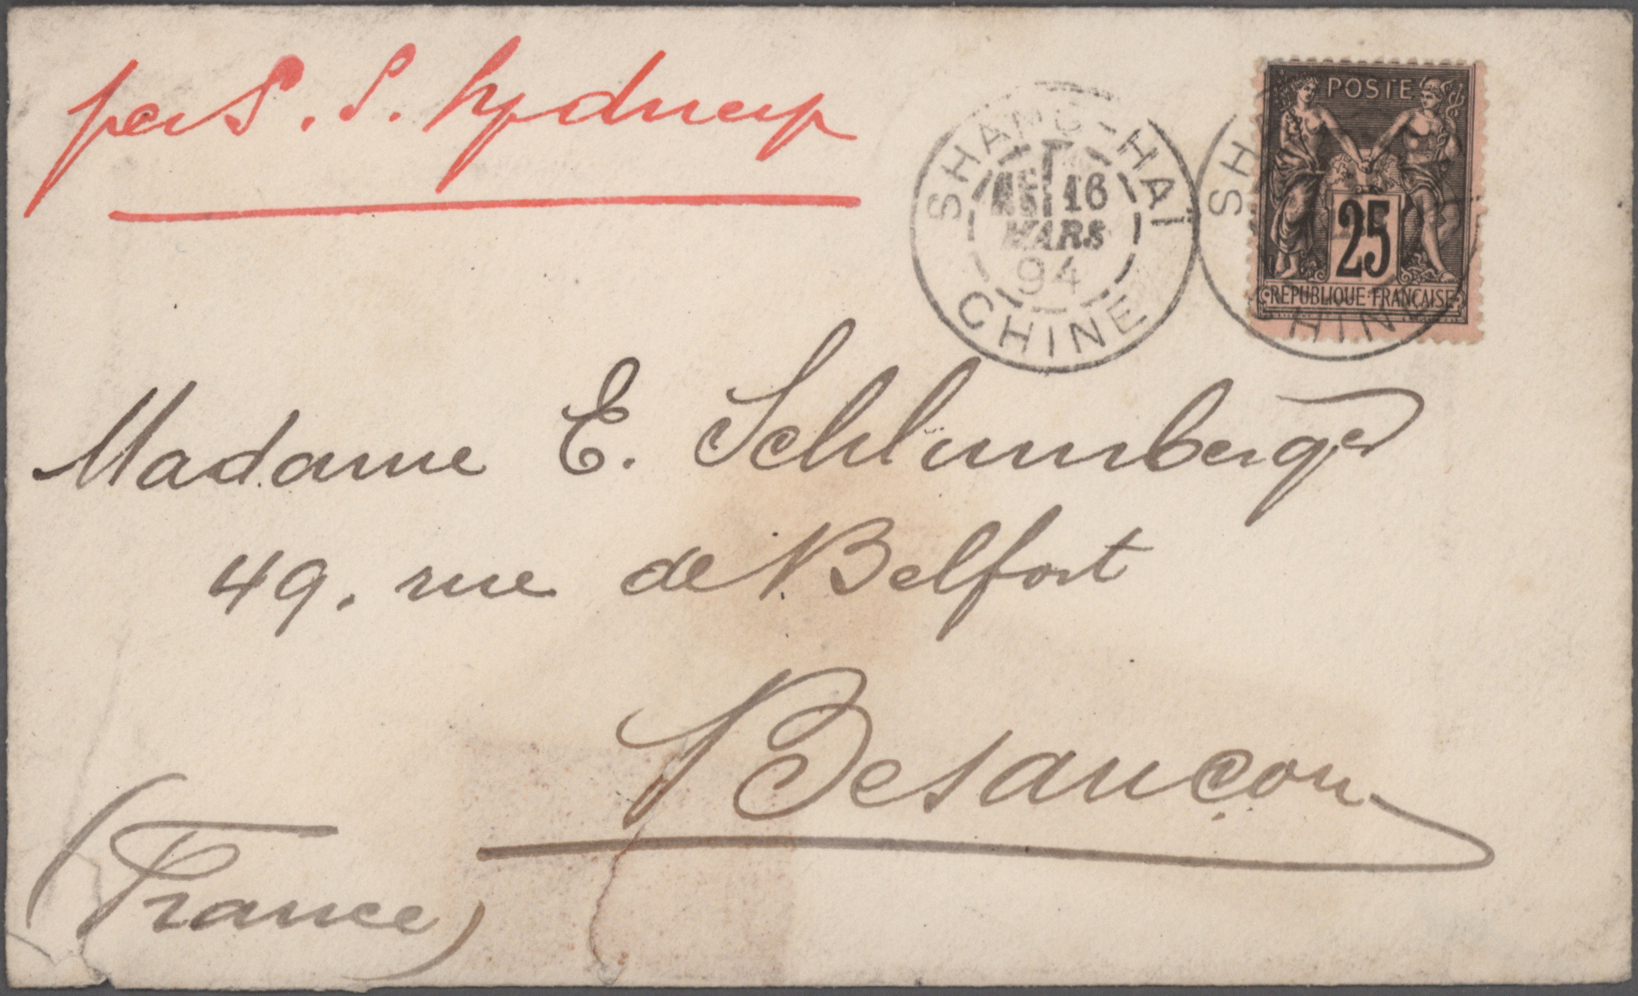 per S. S. Sydney
SHANG-HAÏ
16
MARS
94
CHINE
SH
HINE
POSTE
25
REPUBLIQUE FRANÇAISE
Madame E. Schlumberger
49. rue de Belfort
Besançon
(France)